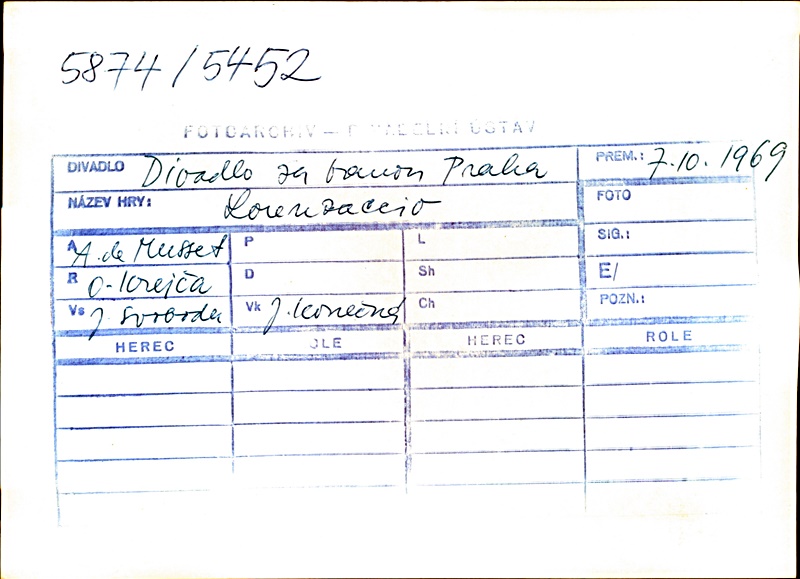 5874/5452
FOTOARCHIV – DIVADELNÍ ÚSTAV
DIVADLO Divadlo za branou Praha PREM.: 7.10.1969
NÁZEV HRY: Lorenzaccio FOTO
A A. de Musset P L SIG.:
R O. Krejča D Sh E/
Vs J. Svoboda Vk J. Konečná Ch POZN.:
HEREC OLE HEREC ROLE